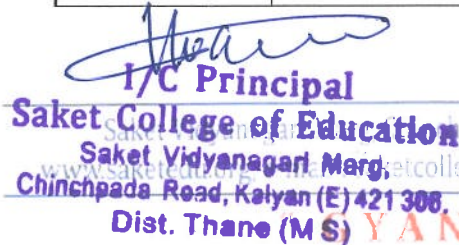 I/C Principal
Saket College of Education
Saket Vidyanagari Marg,
Chinchpada Road, Kalyan (E) 421 306,
Dist. Thane (M S)
GYAN